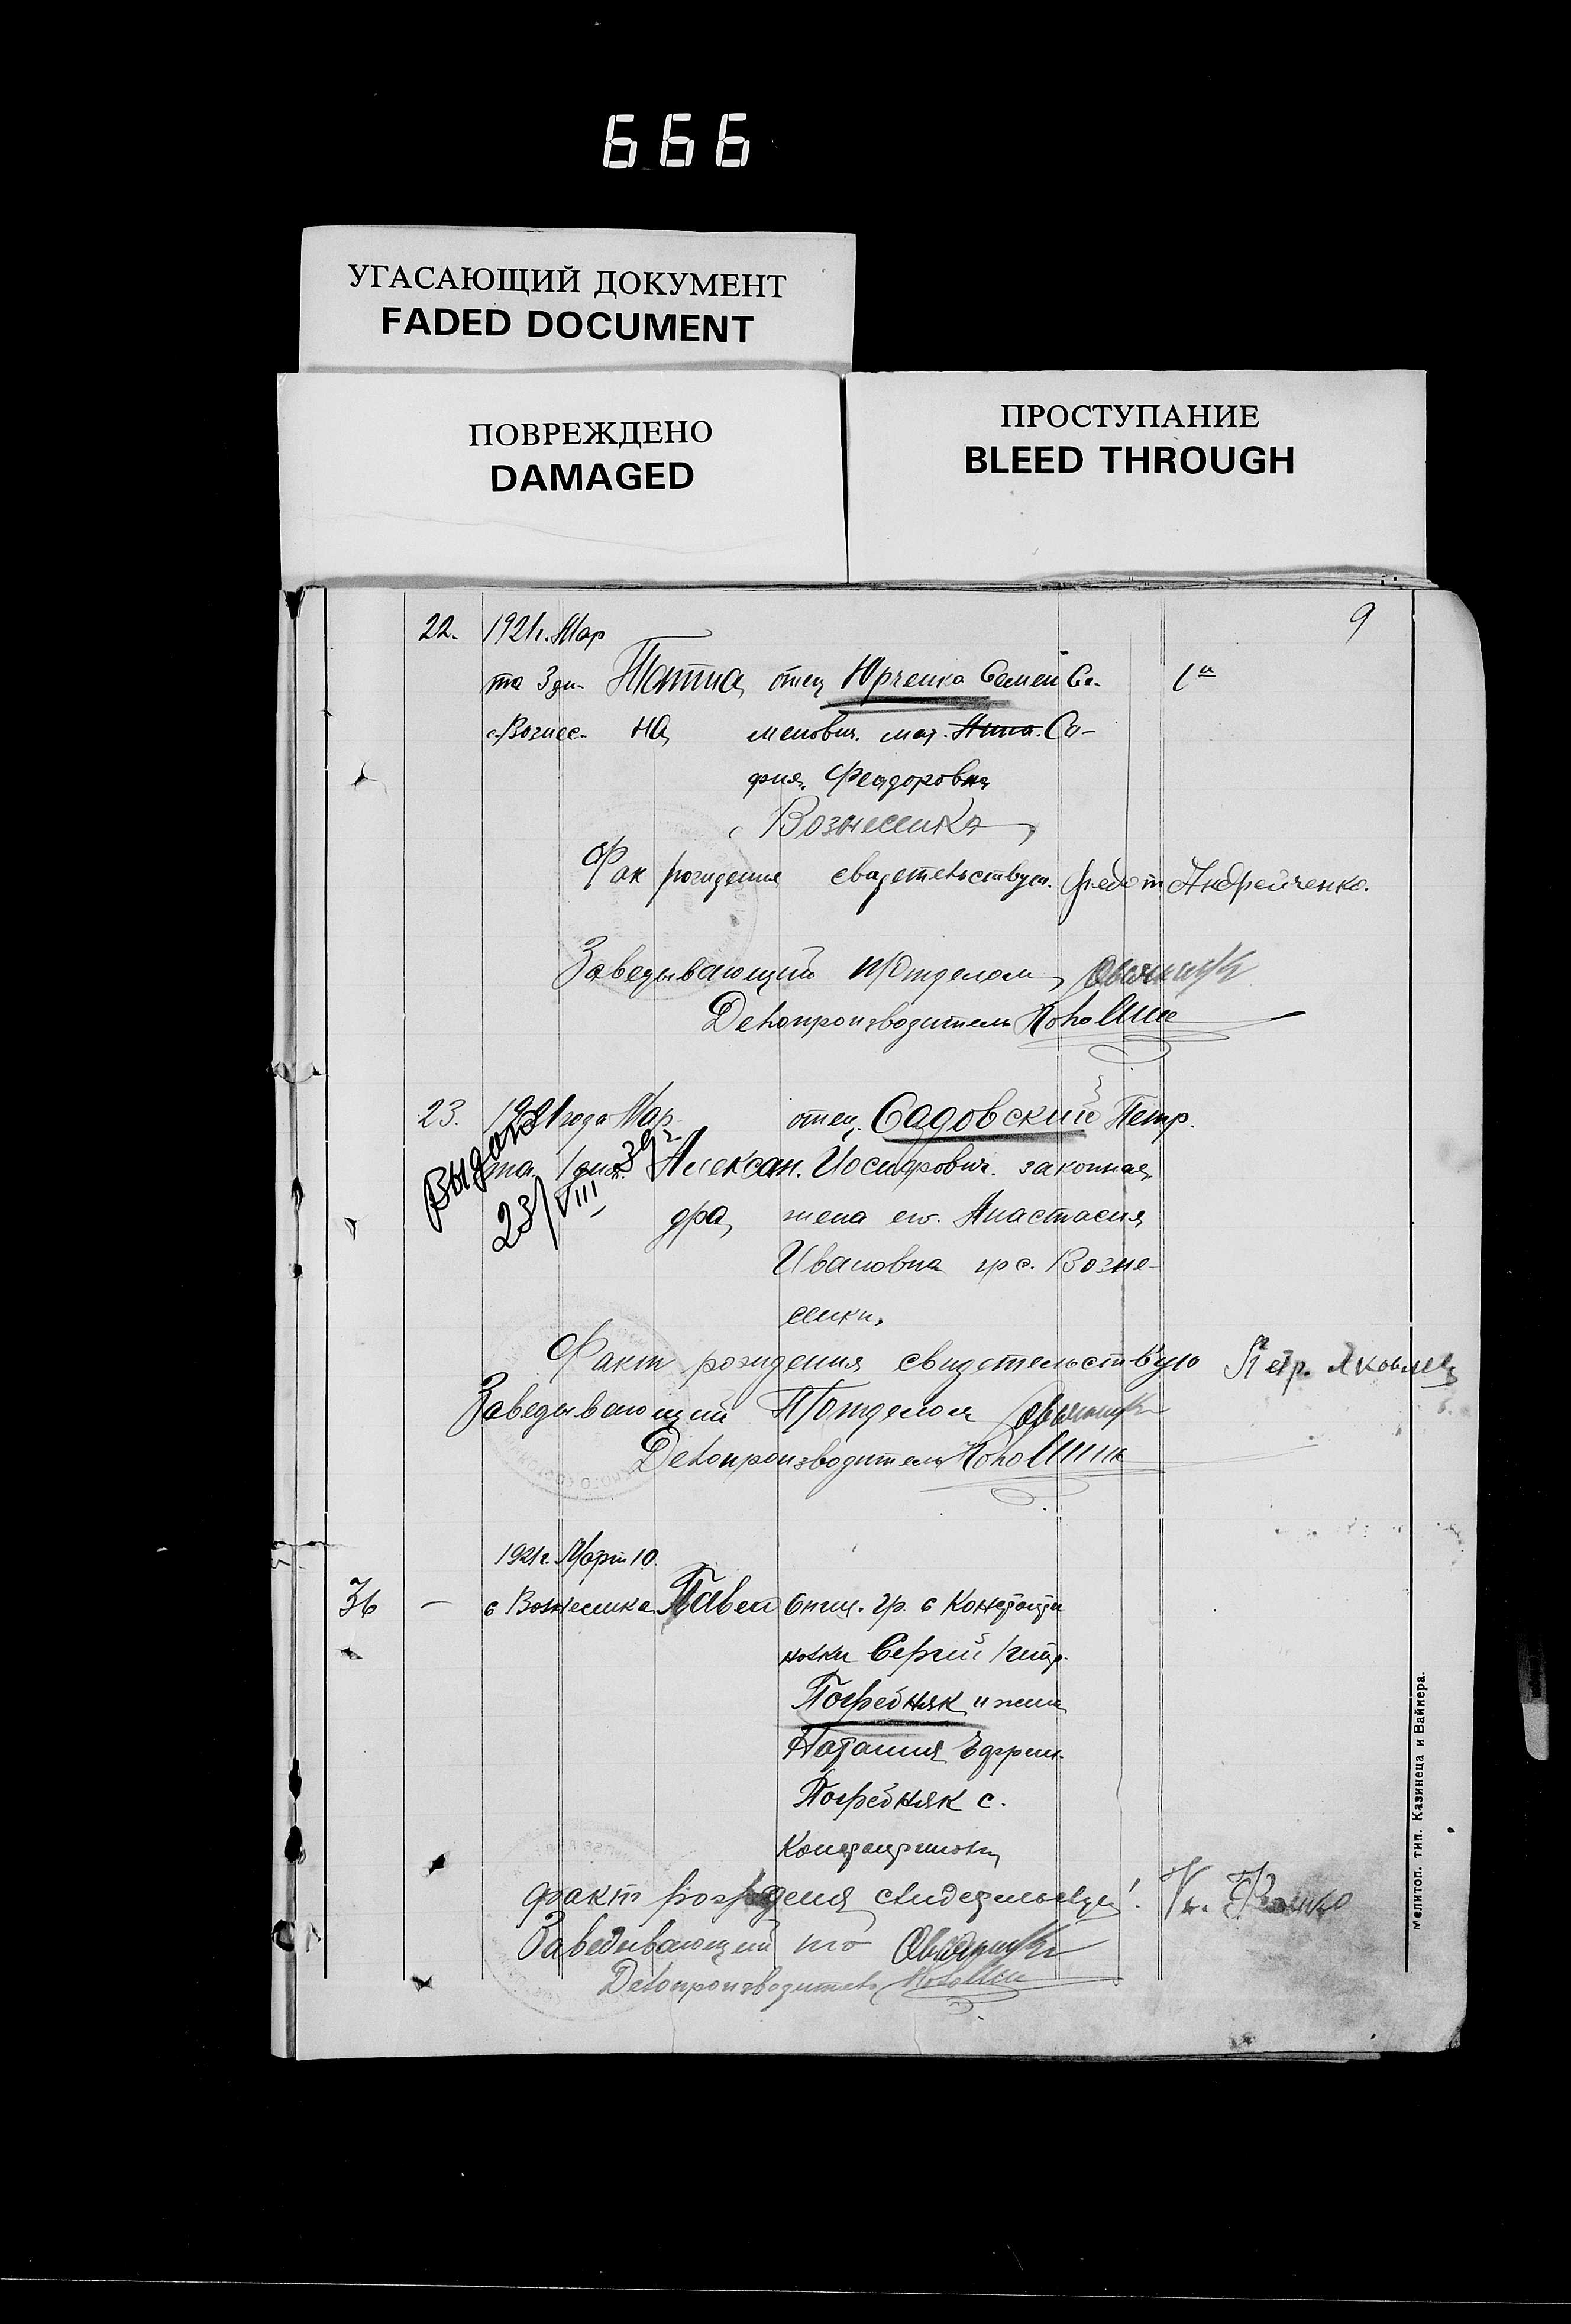 666
УГАСАЮЩИЙ ДОКУМЕНТ
FADED DOCUMENT
ПОВРЕЖДЕНО
DAMAGED
ПРОСТУПАНИЕ
BLEED THROUGH
9
22. 1921 г. Мар
та 3 дн. отец Юрченко Семен Се-
с. Вознес. на менович. мат. Анна. Со-
фия Феодоровна
Вознесенка
Фак рождения свидетельствую. Федот Андрейченко.
Заведывающий П/Отделом
Делопроизводитель
23. 1921 года Мар отец Садовский Петр.
та 1 дня Алексан. Иосифович. законная
дра, жена его. Анастасия
Ивановна гр с. Возне-
сенки.
Выдано
23/VIII 39 г
Факт рождения свидетельствую Петр. Яковлев
Заведывающий П/Отделом
Делопроизводитель
1921 г. Март 10.
36 — с Вознесенка Павел Отец. гр. с Константи
новки Сергий
Погребняк и жена
Наталия Ефрем.
Погребняк с.
Константиновки
факт рождения свидетельствую
Заведывающий п/о
Делопроизводитель
Мелитоп. тип. Казинеца и Вайнера.